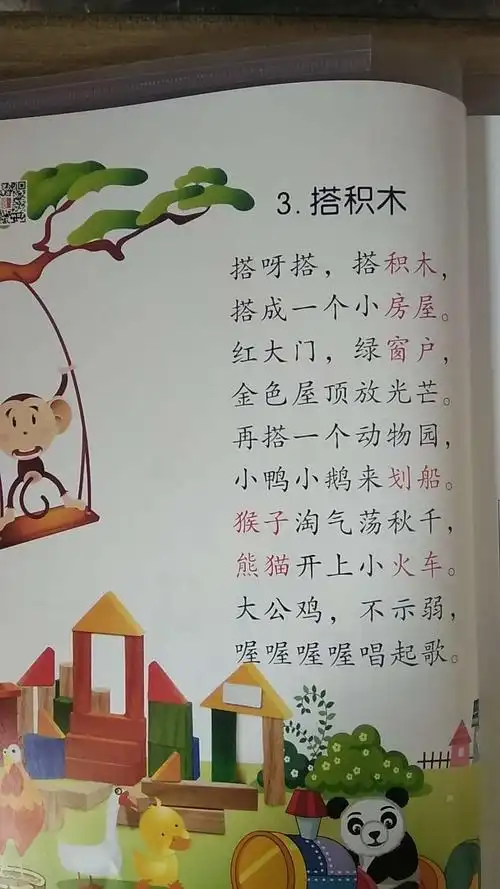 3.搭积木
搭呀搭，搭积木，
搭成一个小房屋。
红大门，绿窗户，
金色屋顶放光芒。
再搭一个动物园，
小鸭小鹅来划船。
猴子淘气荡秋千，
熊猫开上小火车。
大公鸡，不示弱，
喔喔喔喔唱起歌。